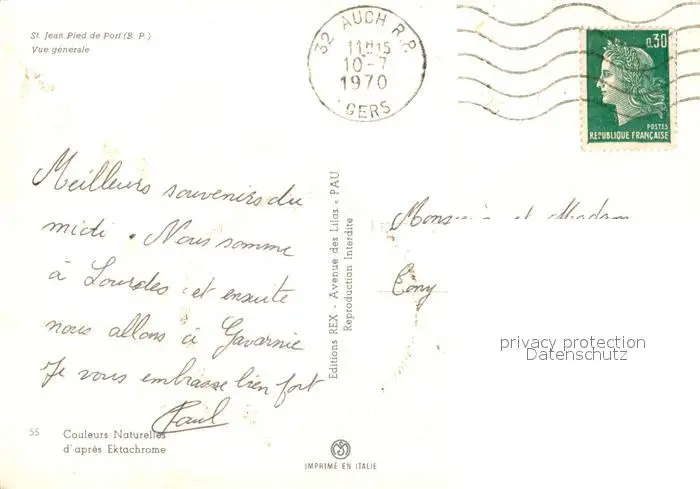 St. Jean Pied de Port (B. P.)
Vue generale
32 AUCH R.P.
11H15
10-7
1970
GERS
0,30
POSTES
REPUBLIQUE FRANÇAISE
Meilleurs souvenirs du
midi. Nous somme
à Lourdes et ensuite
nous allons à Gavarnie
Je vous embrasse bien fort
Paul
Editions REX - Avenue des Lilas - PAU
Reproduction Interdite
et Madam
Cony
privacy protection
Datenschutz
55
Couleurs Naturelles
d'après Ektachrome
IMPRIMÉ EN ITALIE